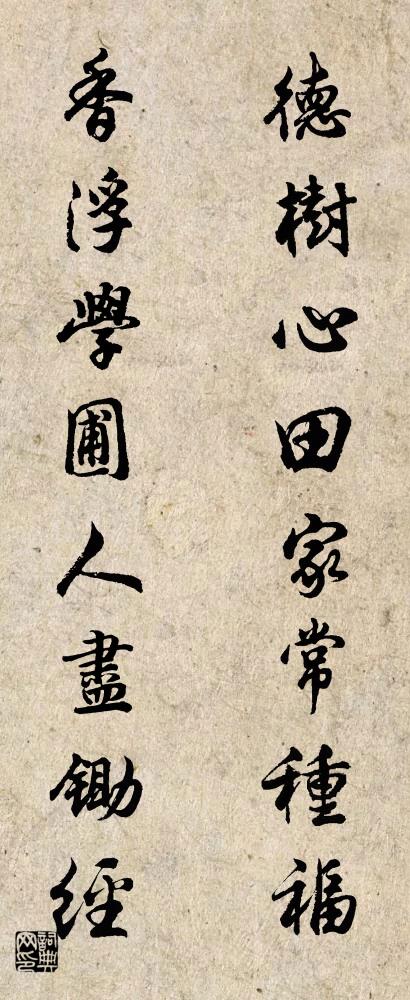 德樹心田家常種福
香浮學圃人盡鋤經
詞典网印